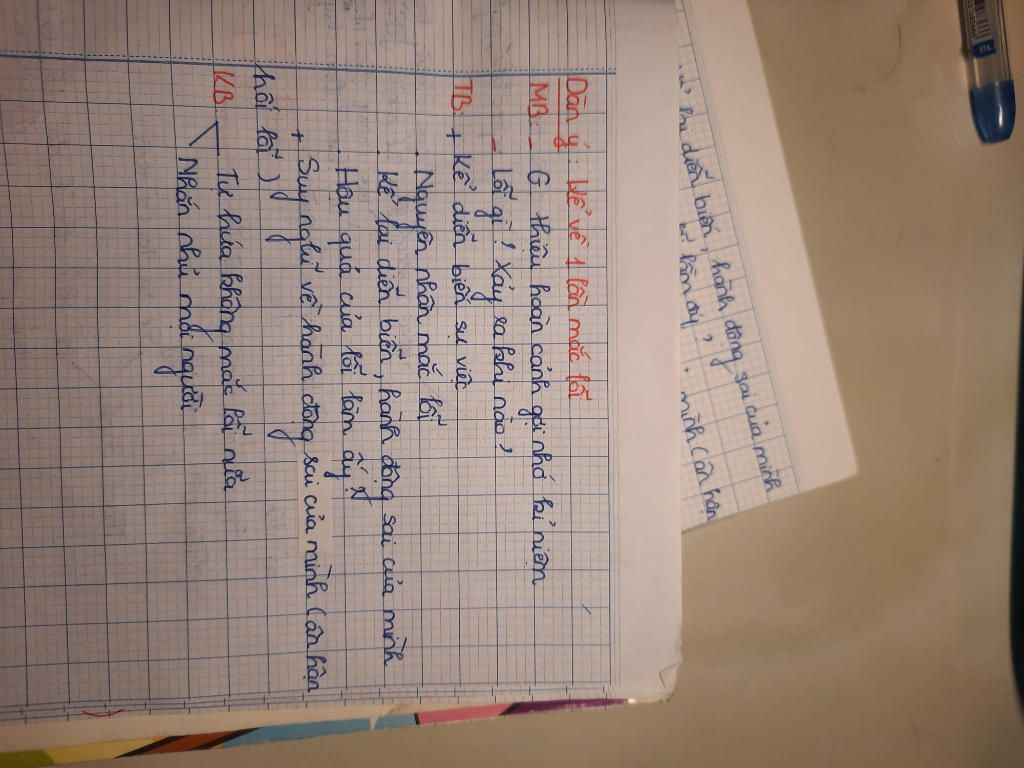 Dàn ý: kể về 1 lần mắc lỗi
MB: - G thiệu hoàn cảnh gợi nhớ kỉ niệm
- Lỗi gì? Xảy ra khi nào,
TB: + Kể diễn biến sự việc
. Nguyên nhân mắc lỗi
. Kể lại diễn biến, hành động sai của mình
. Hậu quả của lỗi lầm ấy?
+ Suy nghĩ về hành động sai của mình (ân hận
hối lỗi)
KB Tự hứa không mắc lỗi nữa
Nhắn nhủ mọi người
diễn biến, hành động sai của mình
lầm ấy,
mình (ân hận